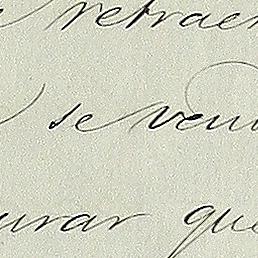 retrae
se veni
urar que